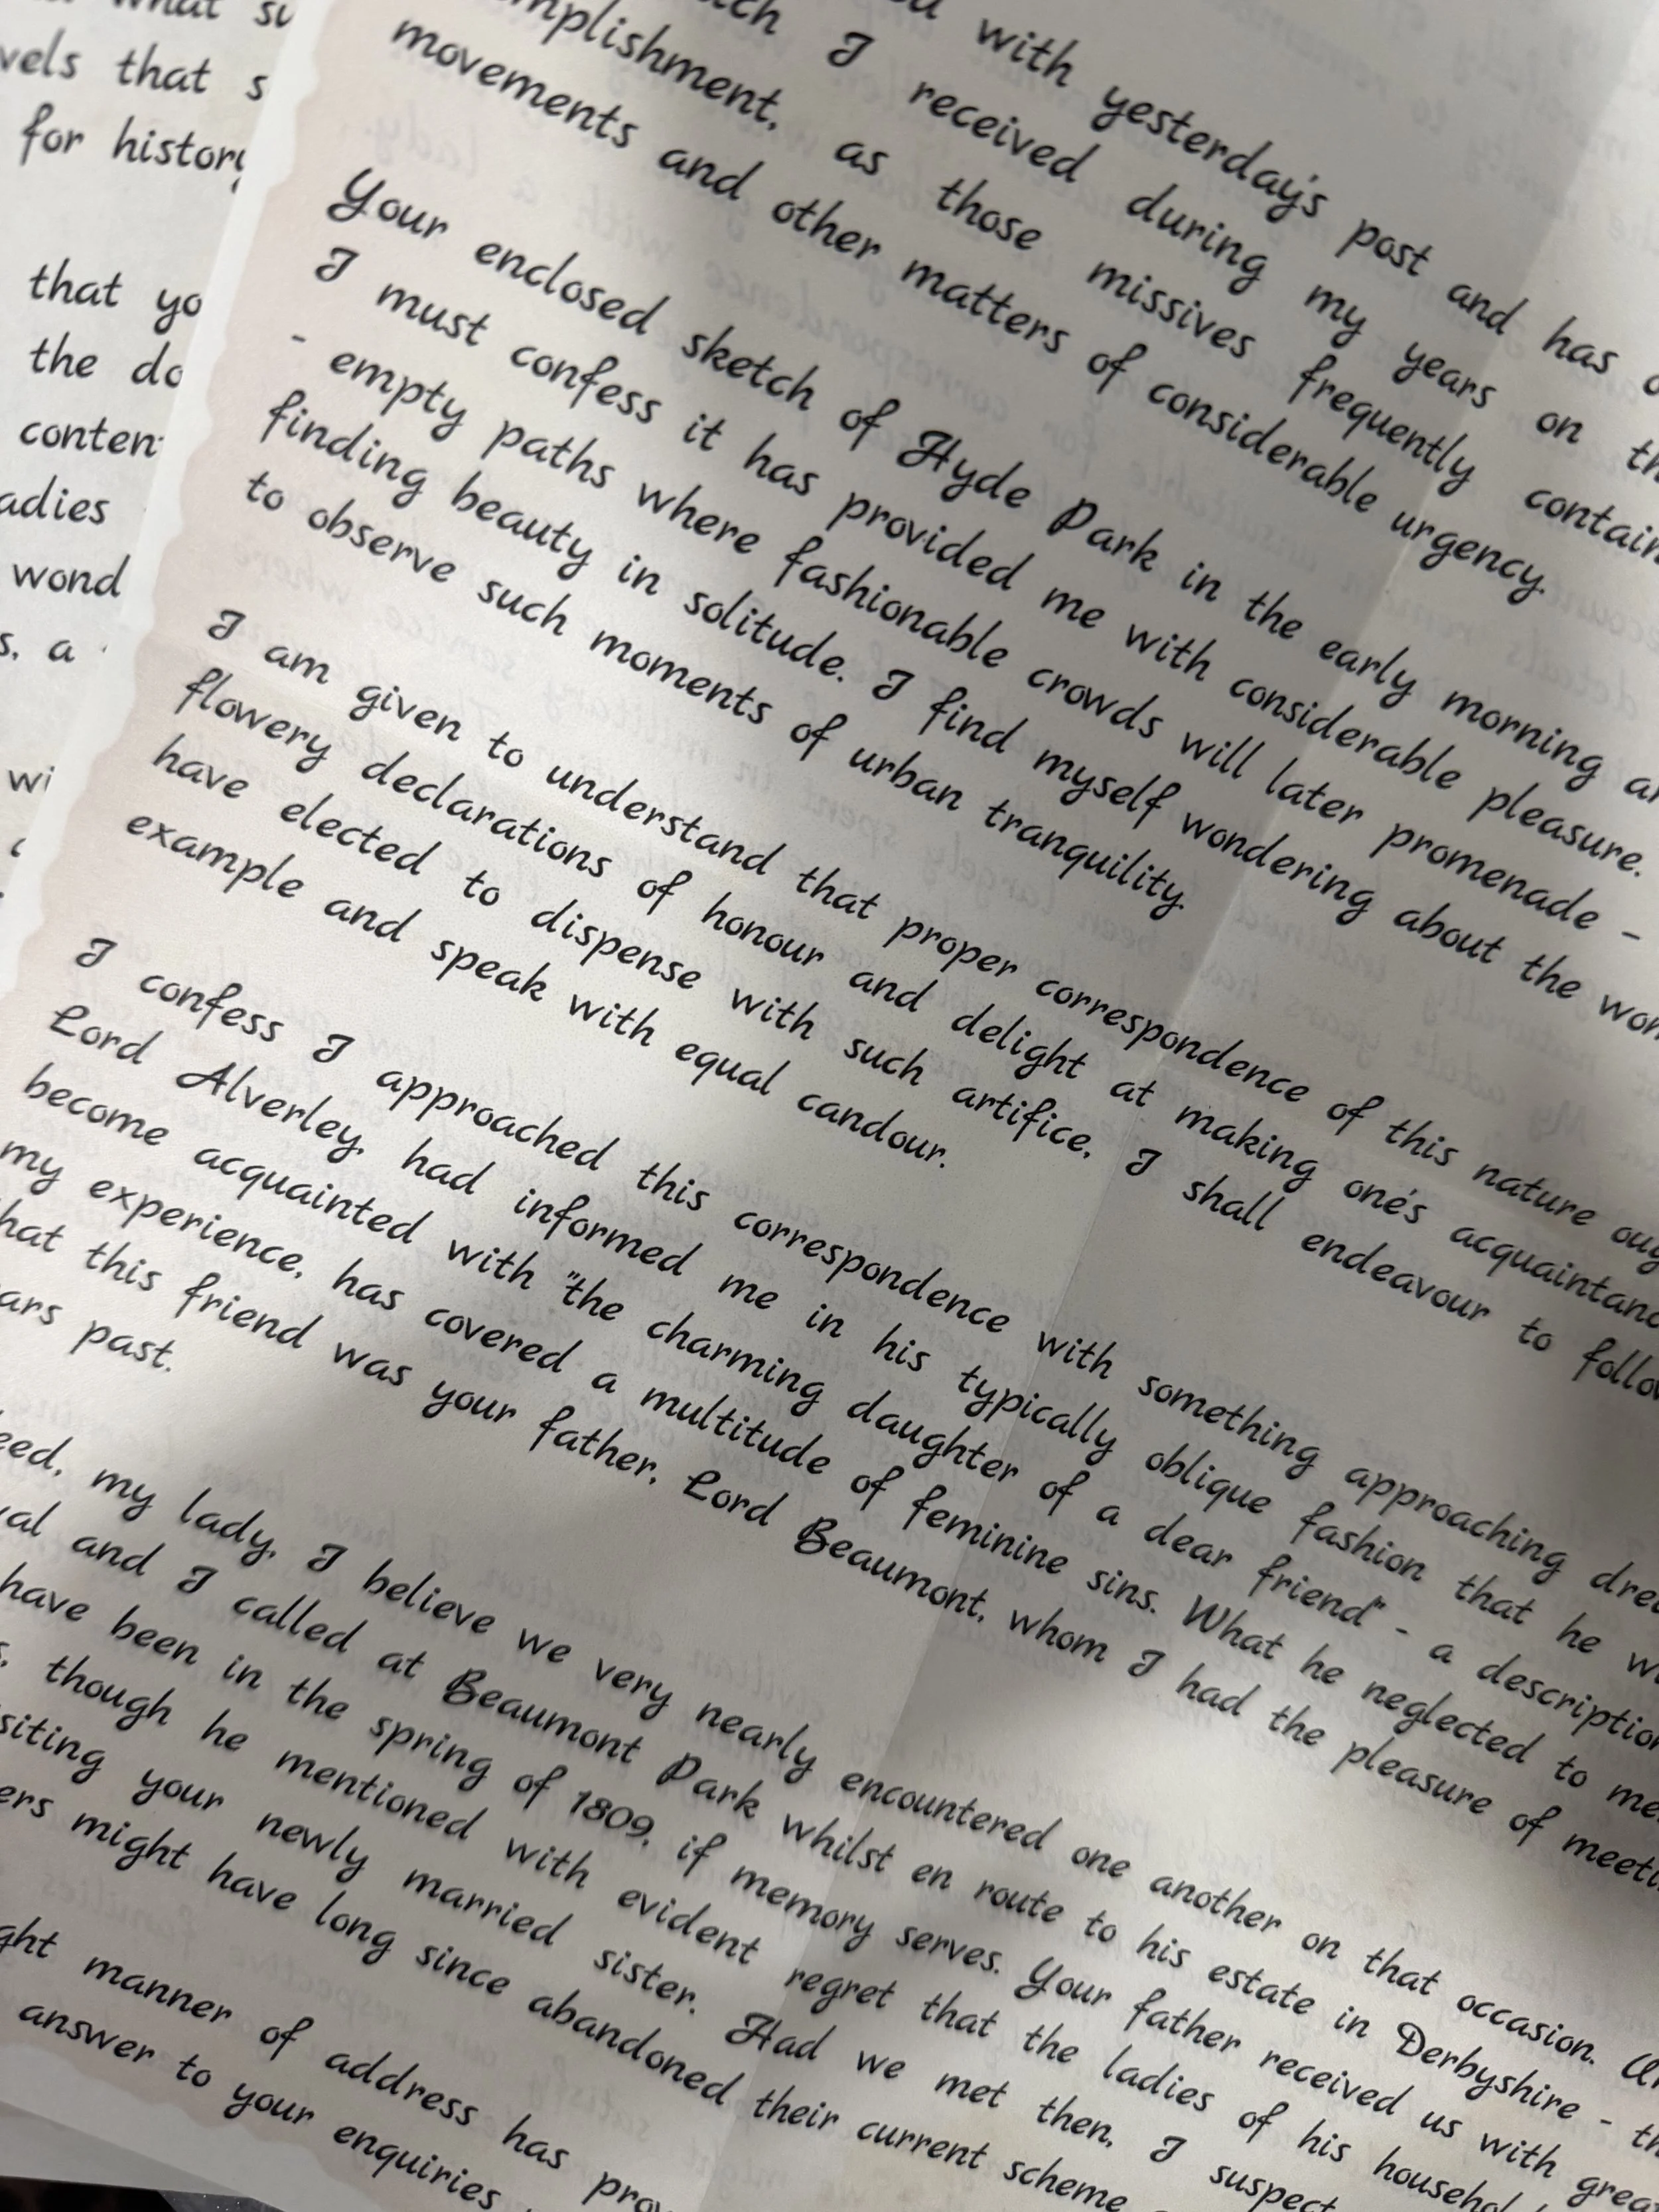 what
vels that s
for history
that yo
the do
conten
adies
wond
s, a
wi
with yesterday's post and has
I received during my years on th
mplishment, as those missives frequently contain
movements and other matters of considerable urgency.
Your enclosed sketch of Hyde Park in the early morning
I must confess it has provided me with considerable pleasure.
- empty paths where fashionable crowds will later promenade -
finding beauty in solitude. I find myself wondering about the wor
to observe such moments of urban tranquility.
I am given to understand that proper correspondence of this nature oug
flowery declarations of honour and delight at making one's acquaintanc
have elected to dispense with such artifice, I shall endeavour to follo
example and speak with equal candour.
I confess I approached this correspondence with something approaching dre
Lord Alverley, had informed me in his typically oblique fashion that he w
become acquainted with "the charming daughter of a dear friend" - a description
my experience, has covered a multitude of feminine sins. What he neglected to me
hat this friend was your father, Lord Beaumont, whom I had the pleasure of meeti
ars past.
eed, my lady, I believe we very nearly encountered one another on that occasion.
val and I called at Beaumont Park whilst en route to his estate in Derbyshire - th
have been in the spring of 1809, if memory serves. Your father received us with grea
s, though he mentioned with evident regret that the ladies of his househol
siting your newly married sister. Had we met then, I suspect
ers might have long since abandoned their current scheme
ght manner of address has prov
answer to your enquiries